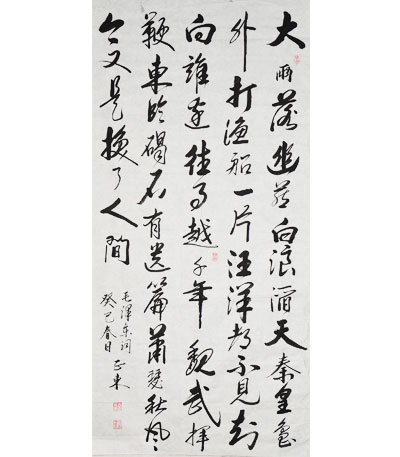 大雨落幽燕白浪滔天秦皇島
外打渔船一片汪洋都不見知
向誰邊往事越千年魏武揮
鞭東臨碣石有遺篇蕭瑟秋風
今又是換了人間
毛澤东词
癸巳春日 正東